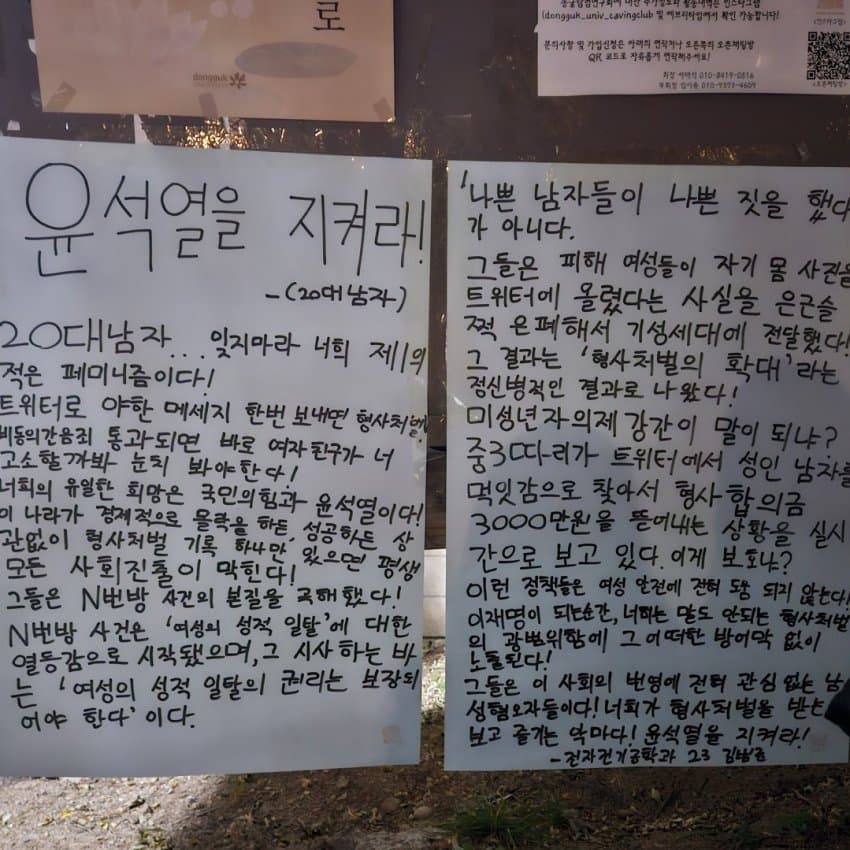 로
dongguk
(dongguk_univ_cavingclub 및 에브리타임에서 확인 가능합니다!
문의사항 및 가입신청은 아래의 연락처나 오픈톡의 오픈채팅방
QR 코드로 자유롭게 연락해주세요!
회장 010-8419-0816
부회장 010-9373-4609
윤석열을 지켜라!
-(20대 남자)
20대남자... 잊지마라 너희 제1의
적은 페미니즘이다!
트위터로 야한 메세지 한번 보내면 형사처벌!
비동의간음죄 통과되면 바로 여자친구가 너
고소할까봐 눈치 봐야한다!
너희의 유일한 희망은 국민의힘과 윤석열이다!
이 나라가 경제적으로 몰락을 하든, 성공하든 상
관없이 형사처벌 기록 하나만 있으면 평생
모든 사회진출이 막힌다!
그들은 N번방 사건의 본질을 곡해했다!
N번방 사건은 '여성의 성적 일탈'에 대한
열등감으로 시작됐으며, 그 시사 하는 바
는 '여성의 성적 일탈의 권리는 보장되
어야 한다'이다.
'나쁜 남자들이 나쁜 짓을 했다
가 아니다.
그들은 피해 여성들이 자기 몸 사진을
트위터에 올렸다는 사실을 은근슬
쩍 은폐해서 기성세대에 전달했다!
그 결과는 '형사처벌의 확대'라는
정신병적인 결과로 나왔다!
미성년자의제강간이 말이 되냐?
중3따리가 트위터에서 성인 남자를
먹잇감으로 찾아서 형사 합의금
3000만원을 뜯어내는 상황을 실시
간으로 보고 있다. 이게 보호냐?
이런 정책들은 여성 안전에 전혀 도움 되지 않는다!
이재명이 되는순간, 너희는 말도 안되는 형사처벌
의 광범위함에 그 어떠한 방어막 없이
노출된다!
그들은 이 사회의 번영에 전혀 관심 없는 남
성혐오자들이다! 너희가 형사처벌을 받는
보고 즐기는 악마다! 윤석열을 지켜라!
-전자전기공학과 23